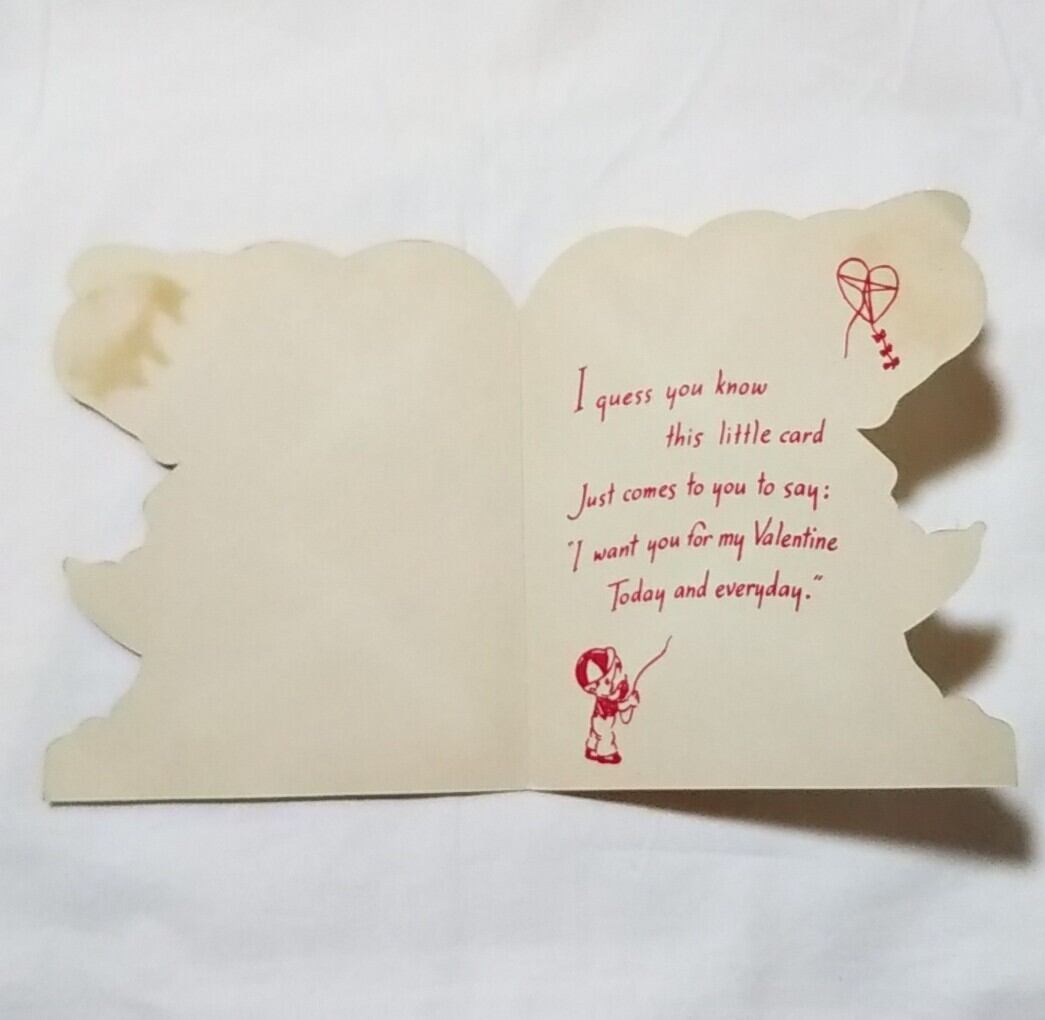 I guess you know
this little card
Just comes to you to say:
"I want you for my Valentine
Today and everyday."